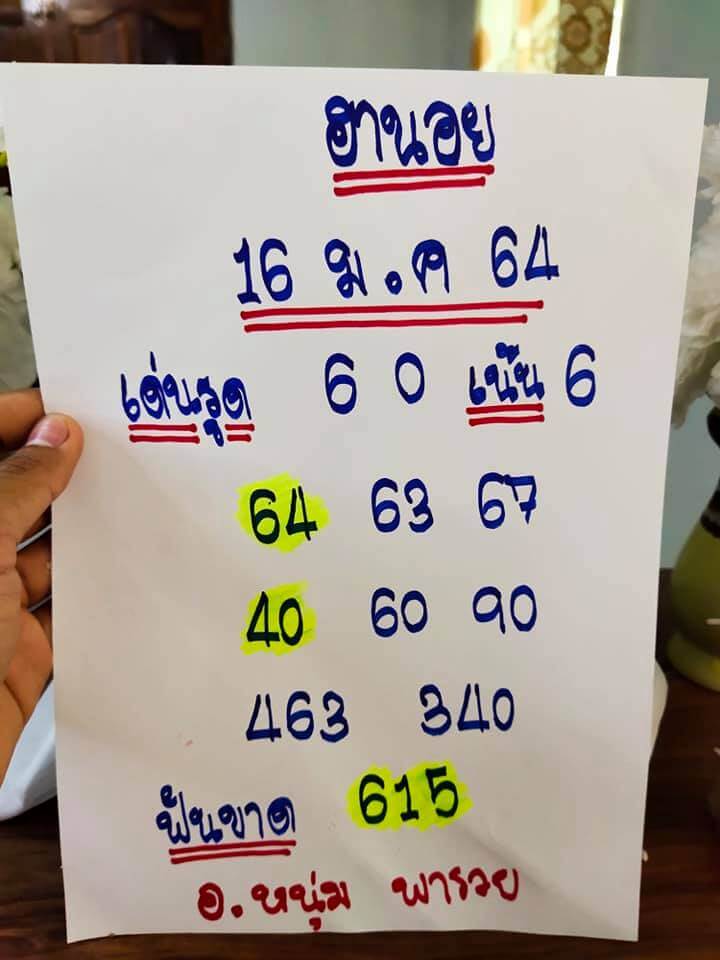 ฮานอย
16 ม.ค 64
เด่นรูด 6 0 เน้น 6
64 63 67
40 60 90
463 340
ฟันขาด 615
อ.หนุ่ม พารวย